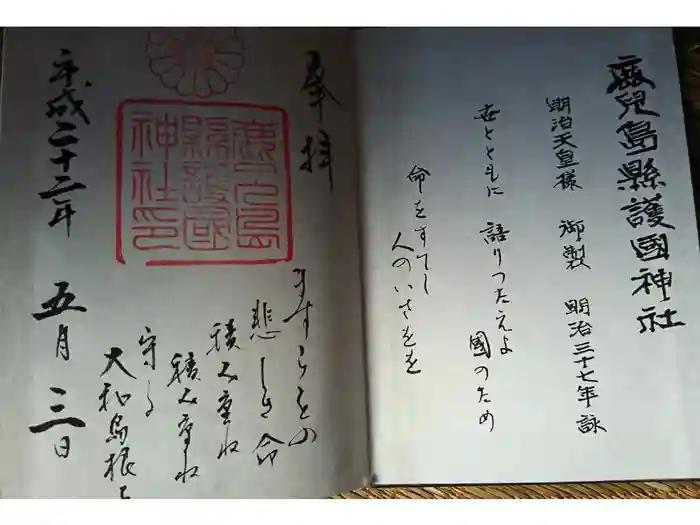 鹿児島縣護國神社
明治天皇様 御製 明治三十七年詠
世とともに 語りつたえよ 國のため
命をすてし 人のいさをを
奉拝
鹿児島
縣護國
神社印
ますらをの
悲しき命
積み重ね
積み重ね
守る
大和島根を
平成二十二年 五月三日